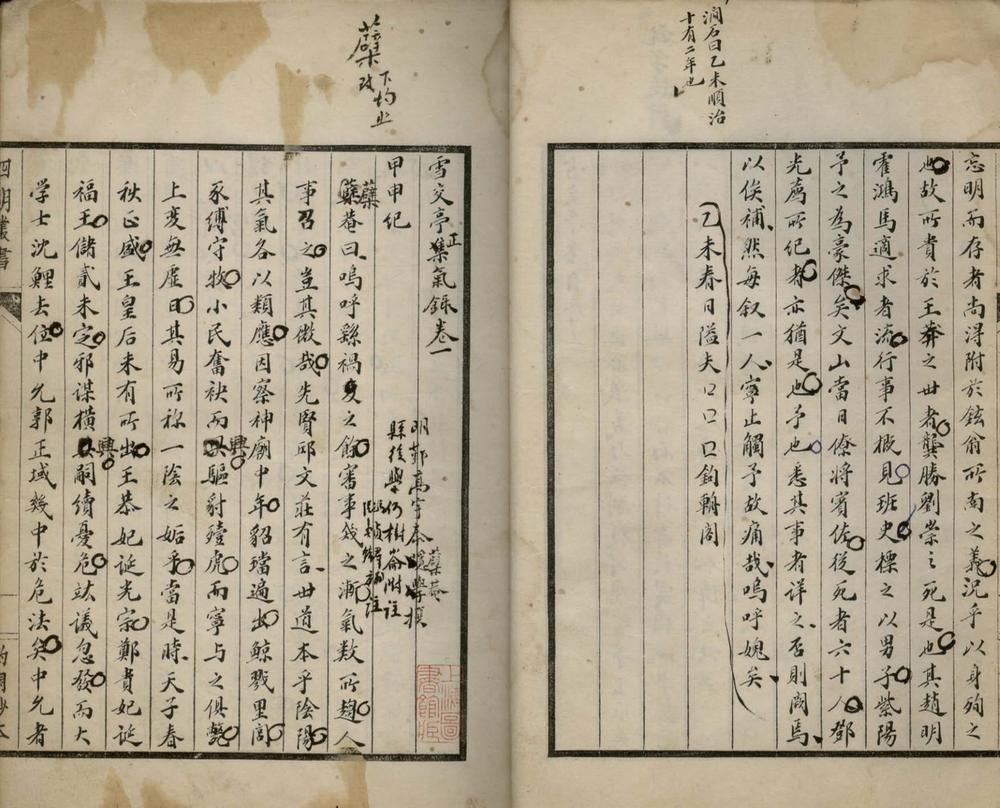 澗石曰乙未順治
十有二年也
忘明而存者尚得附於鉉翁所南之義況乎以身殉之
也故所貴於王莽之世者龔勝劉崇之死是也其趙明
霍鴻馬適求者流行事不概見班史標之以男子紫陽
予之為豪傑矣文山當日僚將賓佐從死者六十人鄧
光薦所紀者亦猶是也予也悉其事者詳之否則闕焉
以俟補然每叙一人寧止觸予故痛哉嗚呼媿矣
乙未春日隘夫口口口鈞韝閣
蘗
下均止
雪交亭正集氣錄卷一
明鄞高宇泰蘗菴
縣後學何樹崙附註
甲申紀
蘗菴曰嗚呼繇禍變之餘審事幾之漸氣数所趨人
事召之豈其微哉先賢邱文莊有言世道本乎陰陽
其氣各以類應因察神廟中年貂璫遍出鯨戮里閭
豕縛守牧小民奮袂而興驅豺殪虎而寧與之俱斃
上爻無虛日其易所稱一陰之姤乎當是時天子春
秋正盛王皇后未有所出王恭妃誕光宗鄭貴妃誕
福王儲貳未定邪謀橫興嗣續憂危竑議忽發而大
學士沈鯉去位中允郭正域幾中於危法矣中允者
四明叢書
約園鈔本
上海圖書館藏